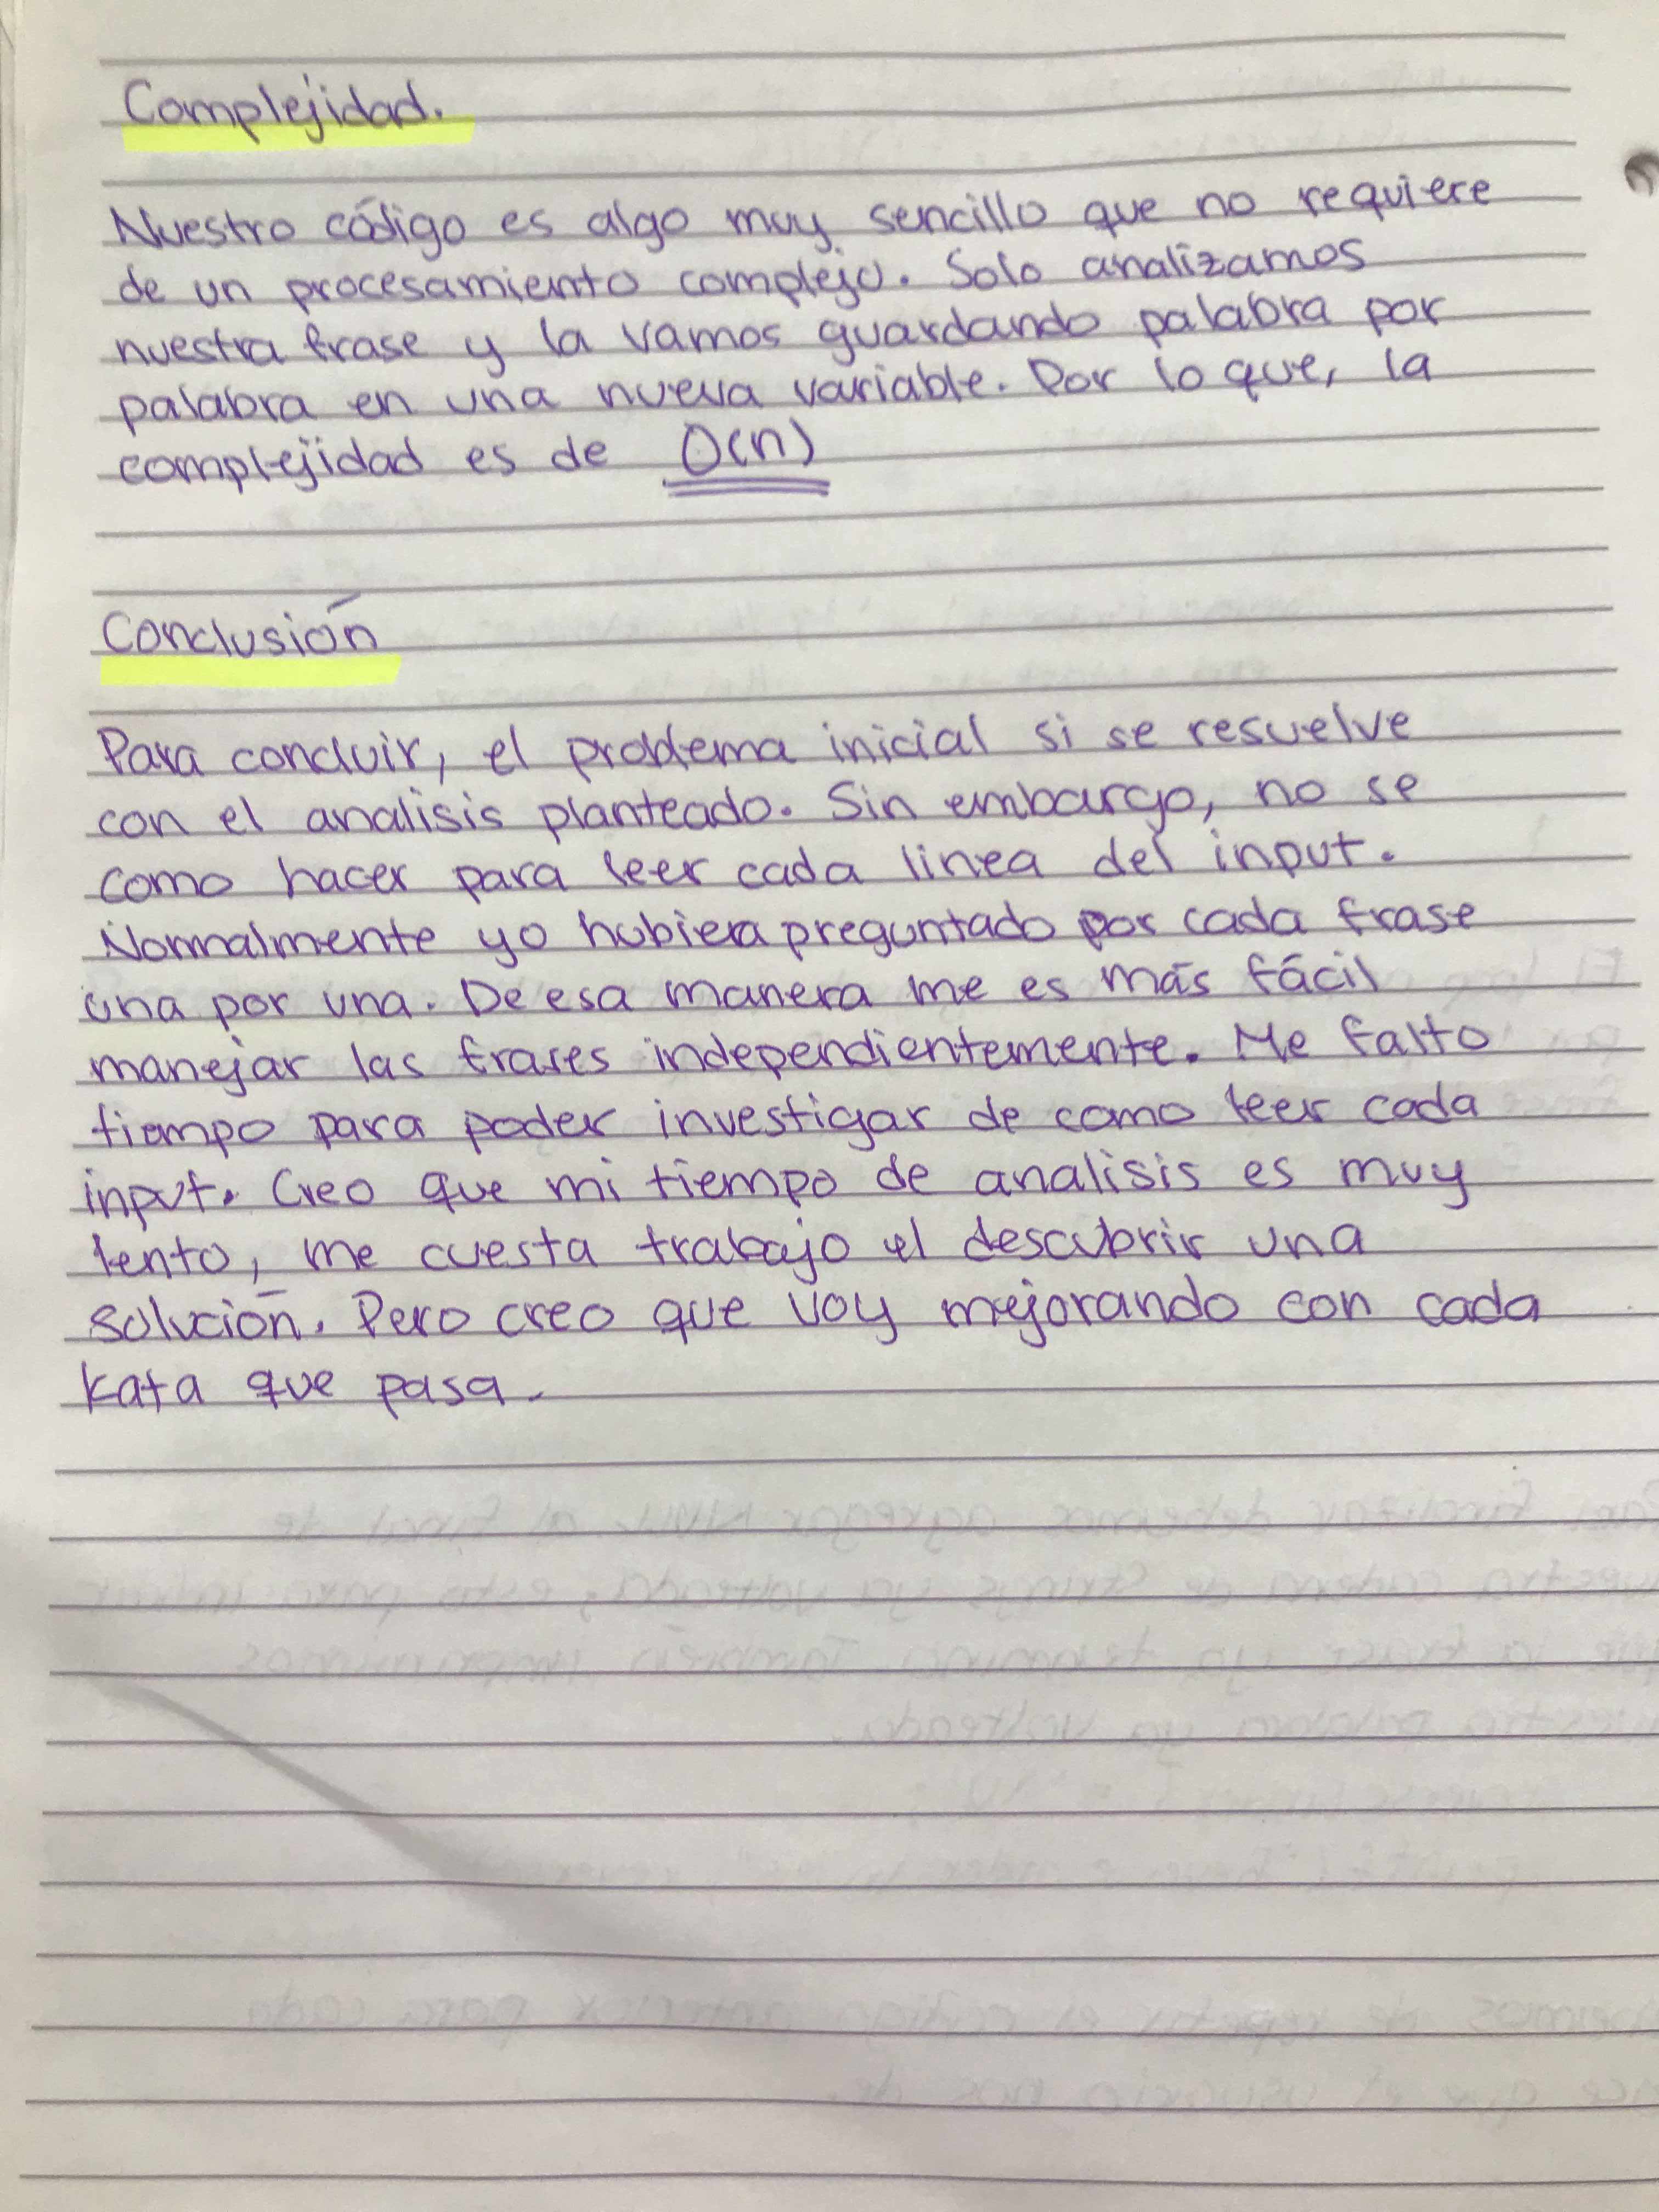 Complejidad.
Nuestro código es algo muy sencillo que no requiere
de un procesamiento complejo. Solo analizamos
nuestra frase y la vamos guardando palabra por
palabra en una nueva variable. Por lo que, la
complejidad es de O(n)
Conclusión
Para concluir, el problema inicial si se resuelve
con el analisis planteado. Sin embargo, no se
como hacer para leer cada linea del input.
Normalmente yo hubiera preguntado por cada frase
una por una. De esa manera me es más fácil
manejar las frases independientemente. Me falto
tiempo para poder investigar de como leer cada
input. Creo que mi tiempo de analisis es muy
lento, me cuesta trabajo el descubrir una
solución. Pero creo que voy mejorando con cada
kata que pasa.